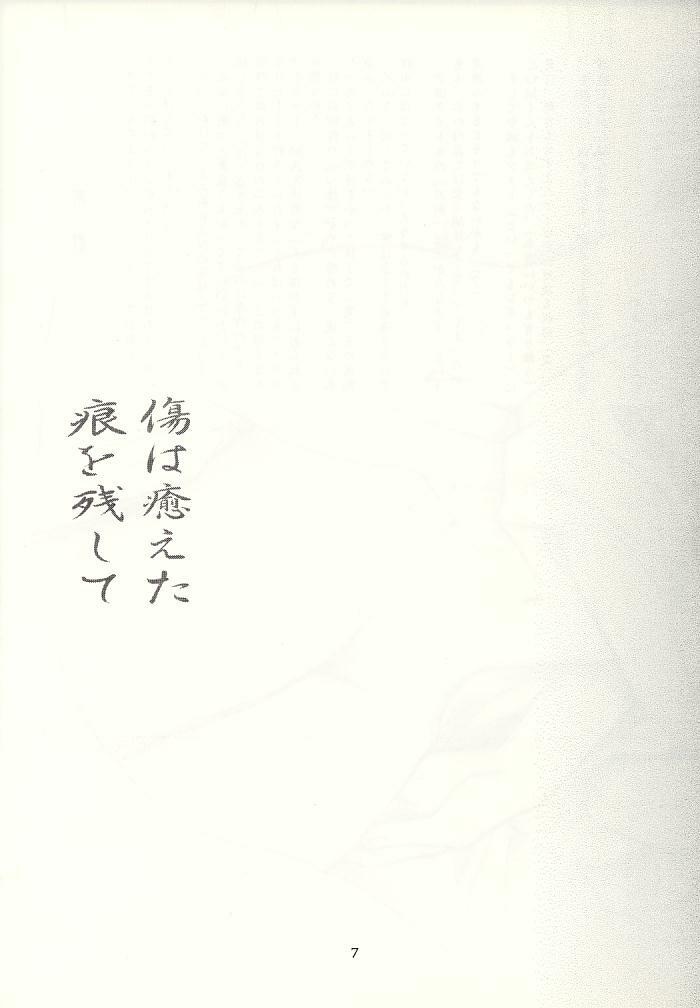 傷は癒えた
痕を残して
7